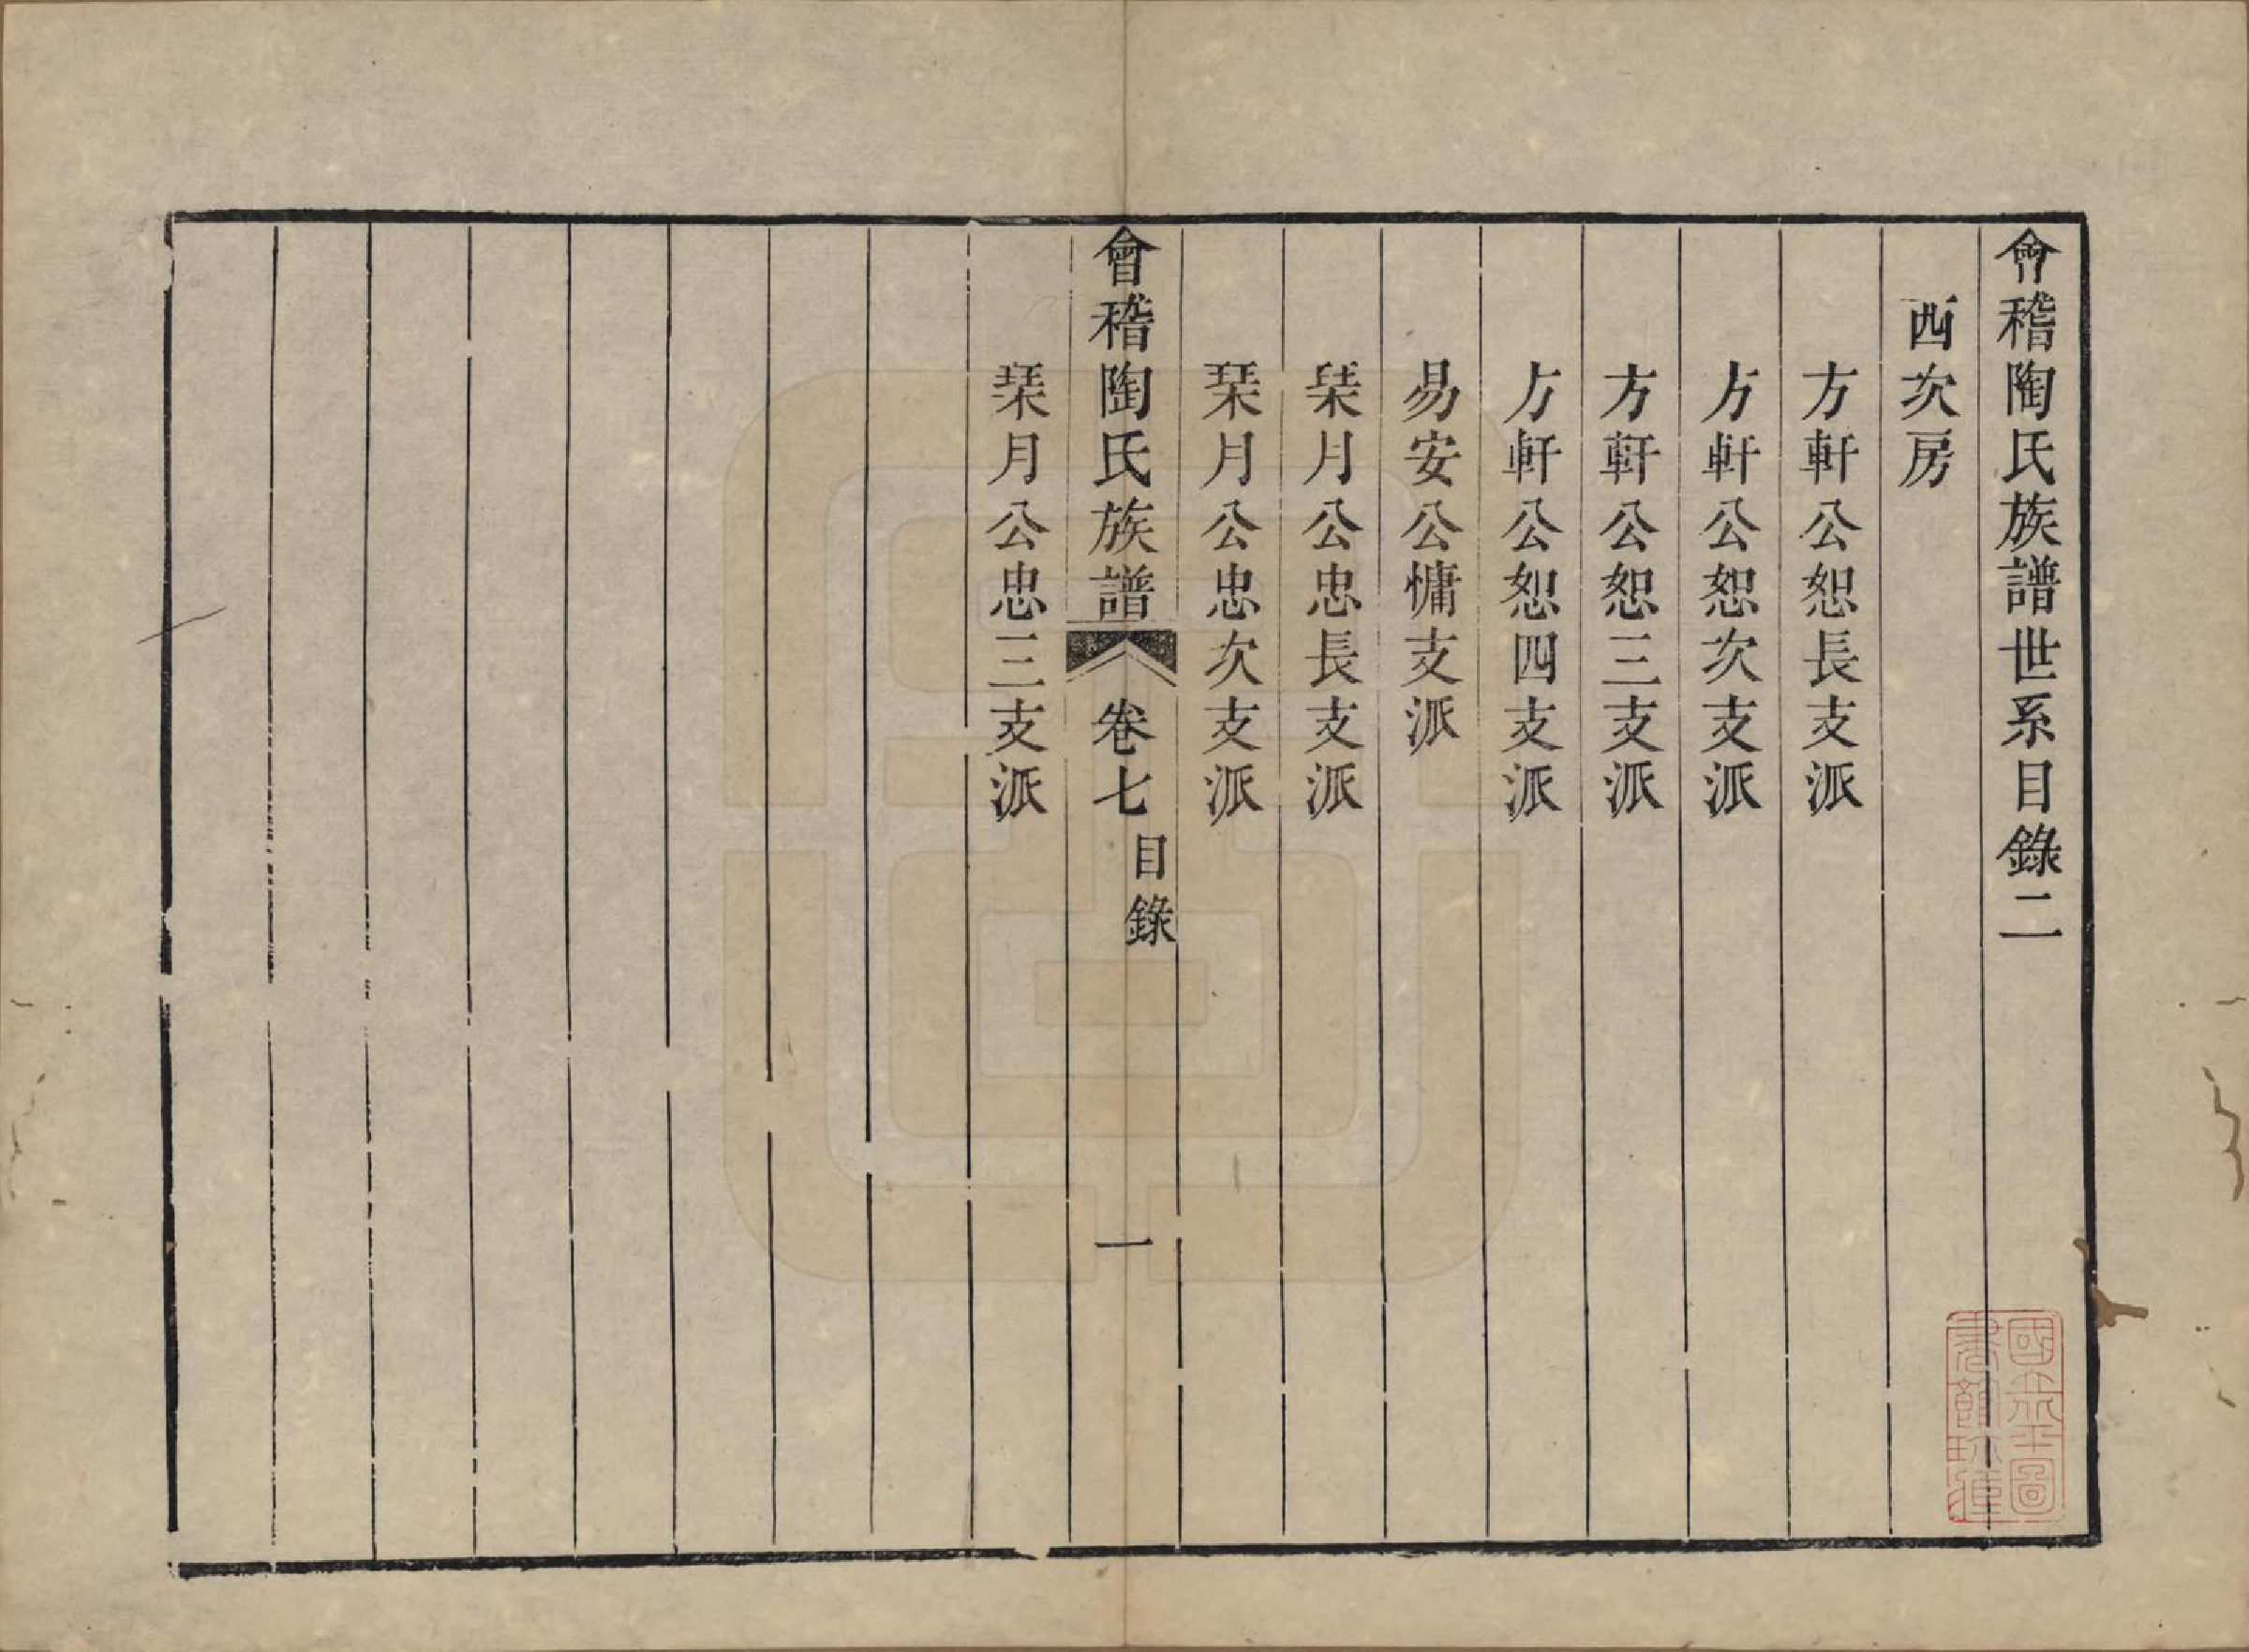 會稽陶氏族譜世系目錄二
西次房
方軒公恕長支派
方軒公恕次支派
方軒公恕三支派
方軒公恕四支派
易安公慵支派
琹月公忠長支派
琹月公忠次支派
會稽陶氏族譜 卷七 目錄 一
琹月公忠三支派
國立北平圖
書館珍藏